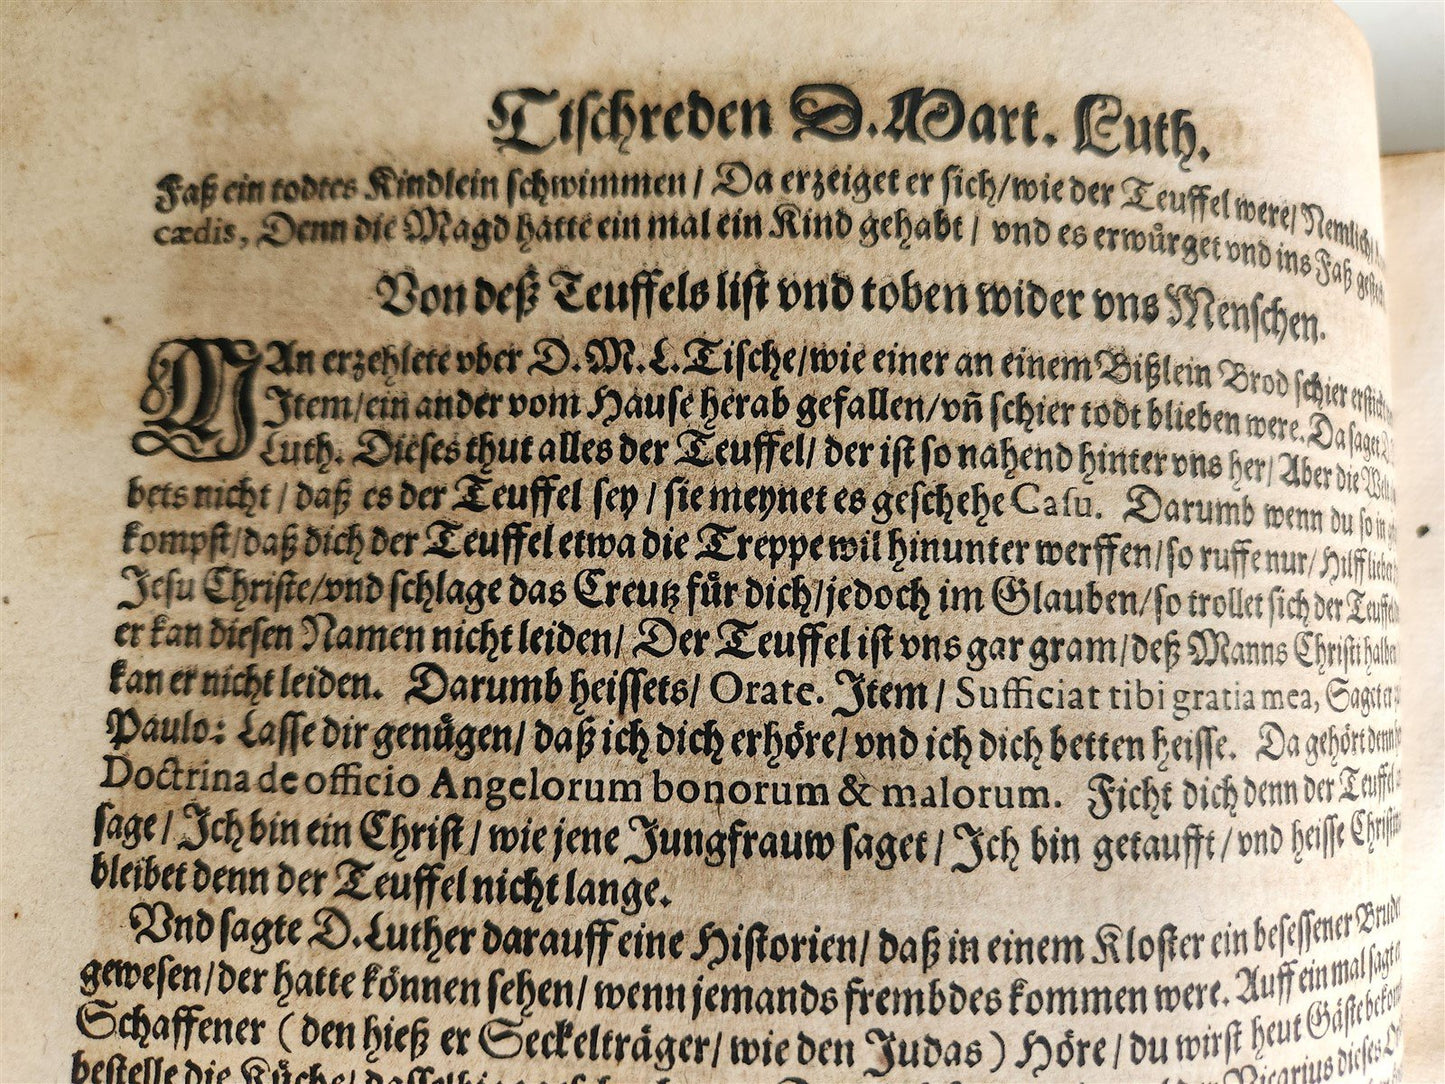 Tiſchreden D. Mart. Luth.
Faß ein todtes Kindlein ſchwimmen / Da erzeiget er ſich / wie der Teuffel were / Nemlich /
cædis, Denn die Magd hatte ein mal ein Kind gehabt / vnd es erwuͤrget vnd ins Faß
Von deß Teuffels liſt vnd toben wider vns Menſchen.
MAn erzehlete vber D. M. L. Tiſche / wie einer an einem Bißlein Brod ſchier
Item / ein ander vom Hauſe herab gefallen / vñ ſchier todt blieben were. Da ſaget
Luth. Dieſes thut alles der Teuffel / der iſt ſo nahend hinter vns her / Aber die Welt
bets nicht / daß es der Teuffel ſey / ſie meynet es geſchehe Caſu. Darumb wenn du ſo in
kompſt / daß dich der Teuffel etwa die Treppe wil hinunter werffen / ſo ruffe nur / Hilff lieber
Jeſu Chriſte / vnd ſchlage das Creutz fuͤr dich / jedoch im Glauben / ſo trollet ſich der Teuffel
er kan dieſen Namen nicht leiden / Der Teuffel iſt vns gar gram / deß Manns Chriſti halben
kan er nicht leiden. Darumb heiſſets / Orate. Item / Sufficiat tibi gratia mea, Saget er
Paulo: Laſſe dir genuͤgen / daß ich dich erhoͤre / vnd ich dich betten heiſſe. Da gehört denn
Doctrina de officio Angelorum bonorum & malorum. Ficht dich denn der Teuffel
ſage / Ich bin ein Chriſt / wie jene Jungfrauw ſaget / Ich bin getaufft / vnd heiſſe
bleibet denn der Teuffel nicht lange.
Vnd ſagte D. Luther darauff eine Hiſtorien / daß in einem Kloſter ein beſeſſener Bruder
geweſen / der hatte koͤnnen ſehen / wenn jemands frembdes kommen were. Auff ein mal ſagt
Schaffener ( den hieß er Seckeltraͤger / wie den Judas ) Hoͤre / du wirſt heut Gaͤſte
beſtelle die Kuͤche / Vicarius dieſes